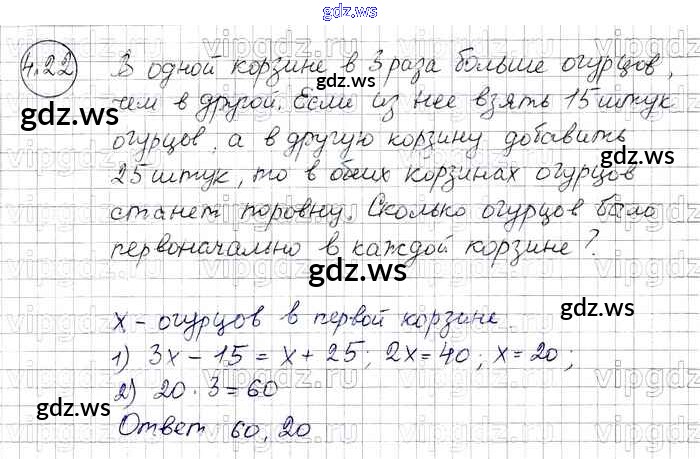 gdz.ws
4.22 В одной корзине в 3 раза больше огурцов,
чем в другой. Если из нее взять 15 штук
огурцов, а в другую корзину добавить
25 штук, то в обеих корзинах огурцов
станет поровну. Сколько огурцов было
первоначально в каждой корзине?
x - огурцов в первой корзине
1) 3x - 15 = x + 25; 2x = 40; x = 20;
2) 20 · 3 = 60
Ответ 60, 20
gdz.ws
gdz.ws
gdz.ws
gdz.ws
gdz.ws
gdz.ws
gdz.ws